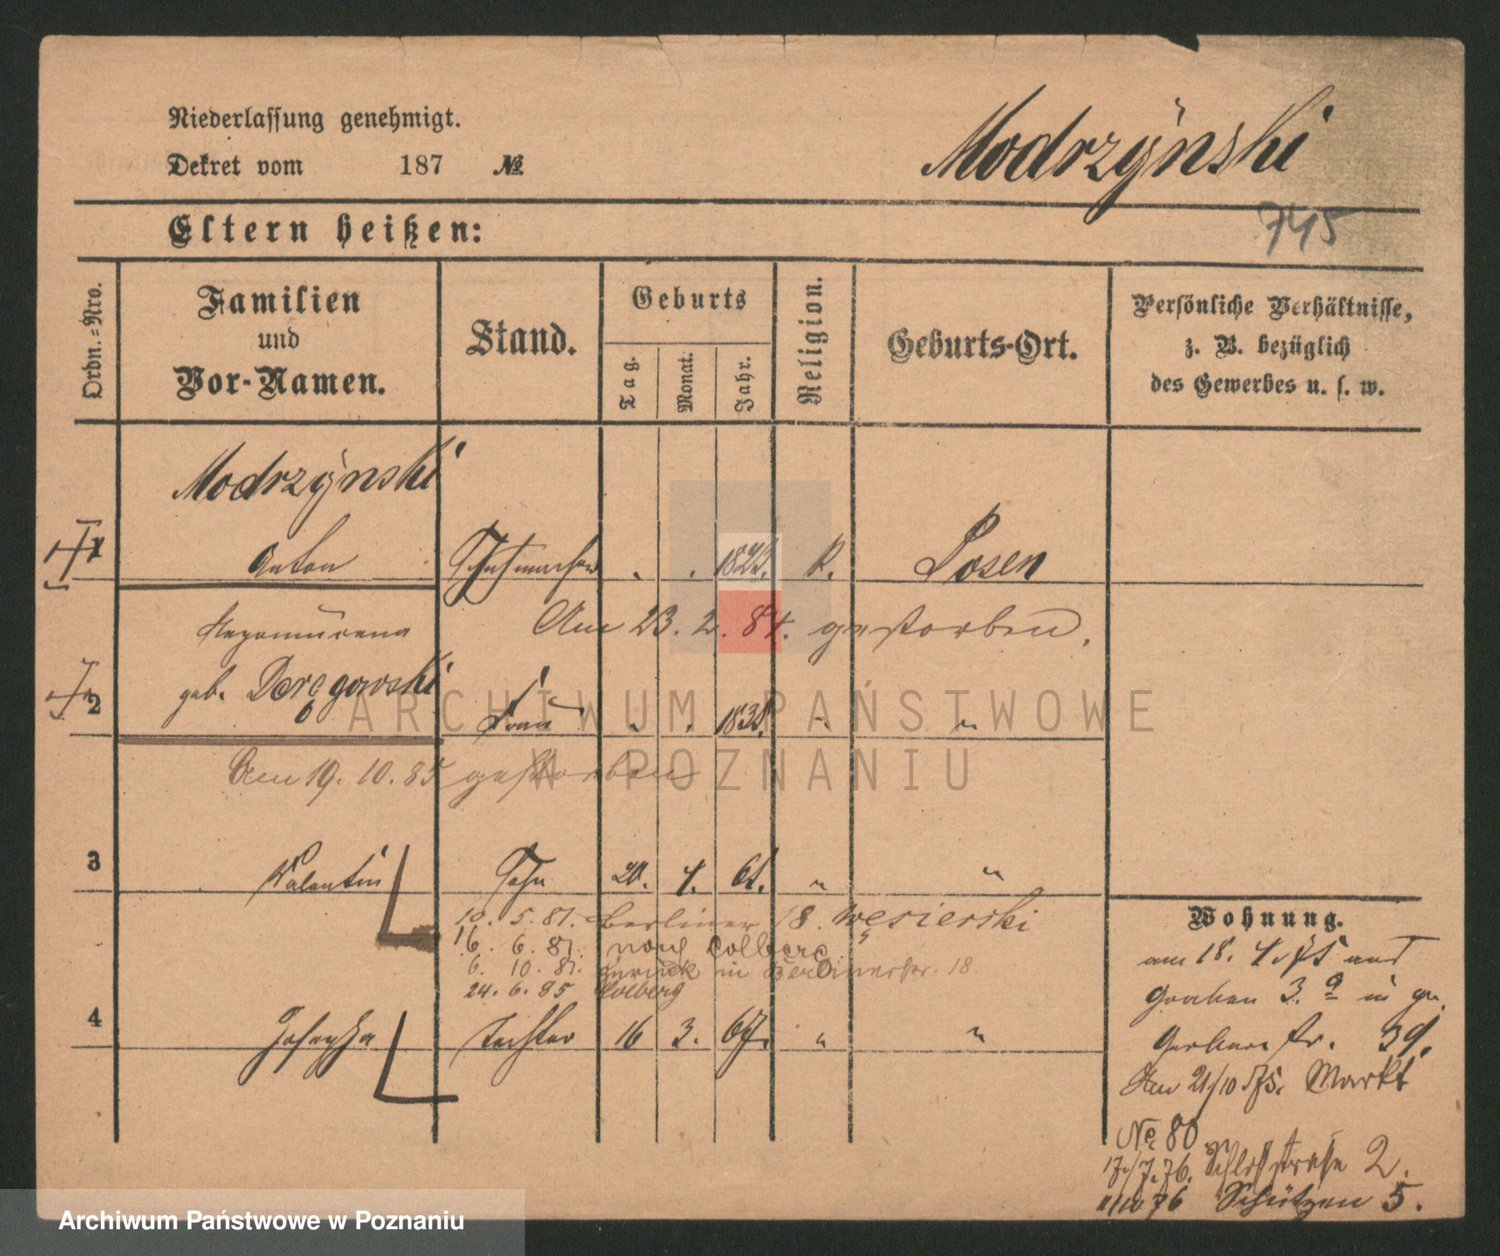 Niederlassung genehmigt.
Dekret vom 187 №
Modrzÿnski
745
Eltern heißen:
Ordn.=Nro.
Familien
und
Vor-Namen.
Stand.
Geburts
Tag.
Monat.
Jahr.
Religion.
Geburts-Ort.
Persönliche Verhältnisse,
z. B. bezüglich
des Gewerbes u. s. w.
Modrzÿnski
1 Anton Schuhmacher . . 1823. k. Posen
Am 23. 2. 84. gestorben.
Nepomucena
geb. Deręgowski
2 Frau " . 1838. " "
Am 19. 10. 85 gestorben
3 Valentin Sohn 20. 1. 61. " "
10. 5. 81. Berliner 18. Węsierski
16. 6. 81. nach Colberg
6. 10. 81. zurück in Berlinerstr. 18.
24. 6. 85 Colberg
4 Josepha Tochter 16 3. 67. " "
Wohnung.
am 18. 4. 75 aus
Graben 3. a in gr.
Gerber str. 39.
Am 21/10 75. Markt
No 80
17./7.76. Schloßstraße 2.
76 Schützen 5.
ARCHIWUM PAŃSTWOWE
W POZNANIU
Archiwum Państwowe w Poznaniu